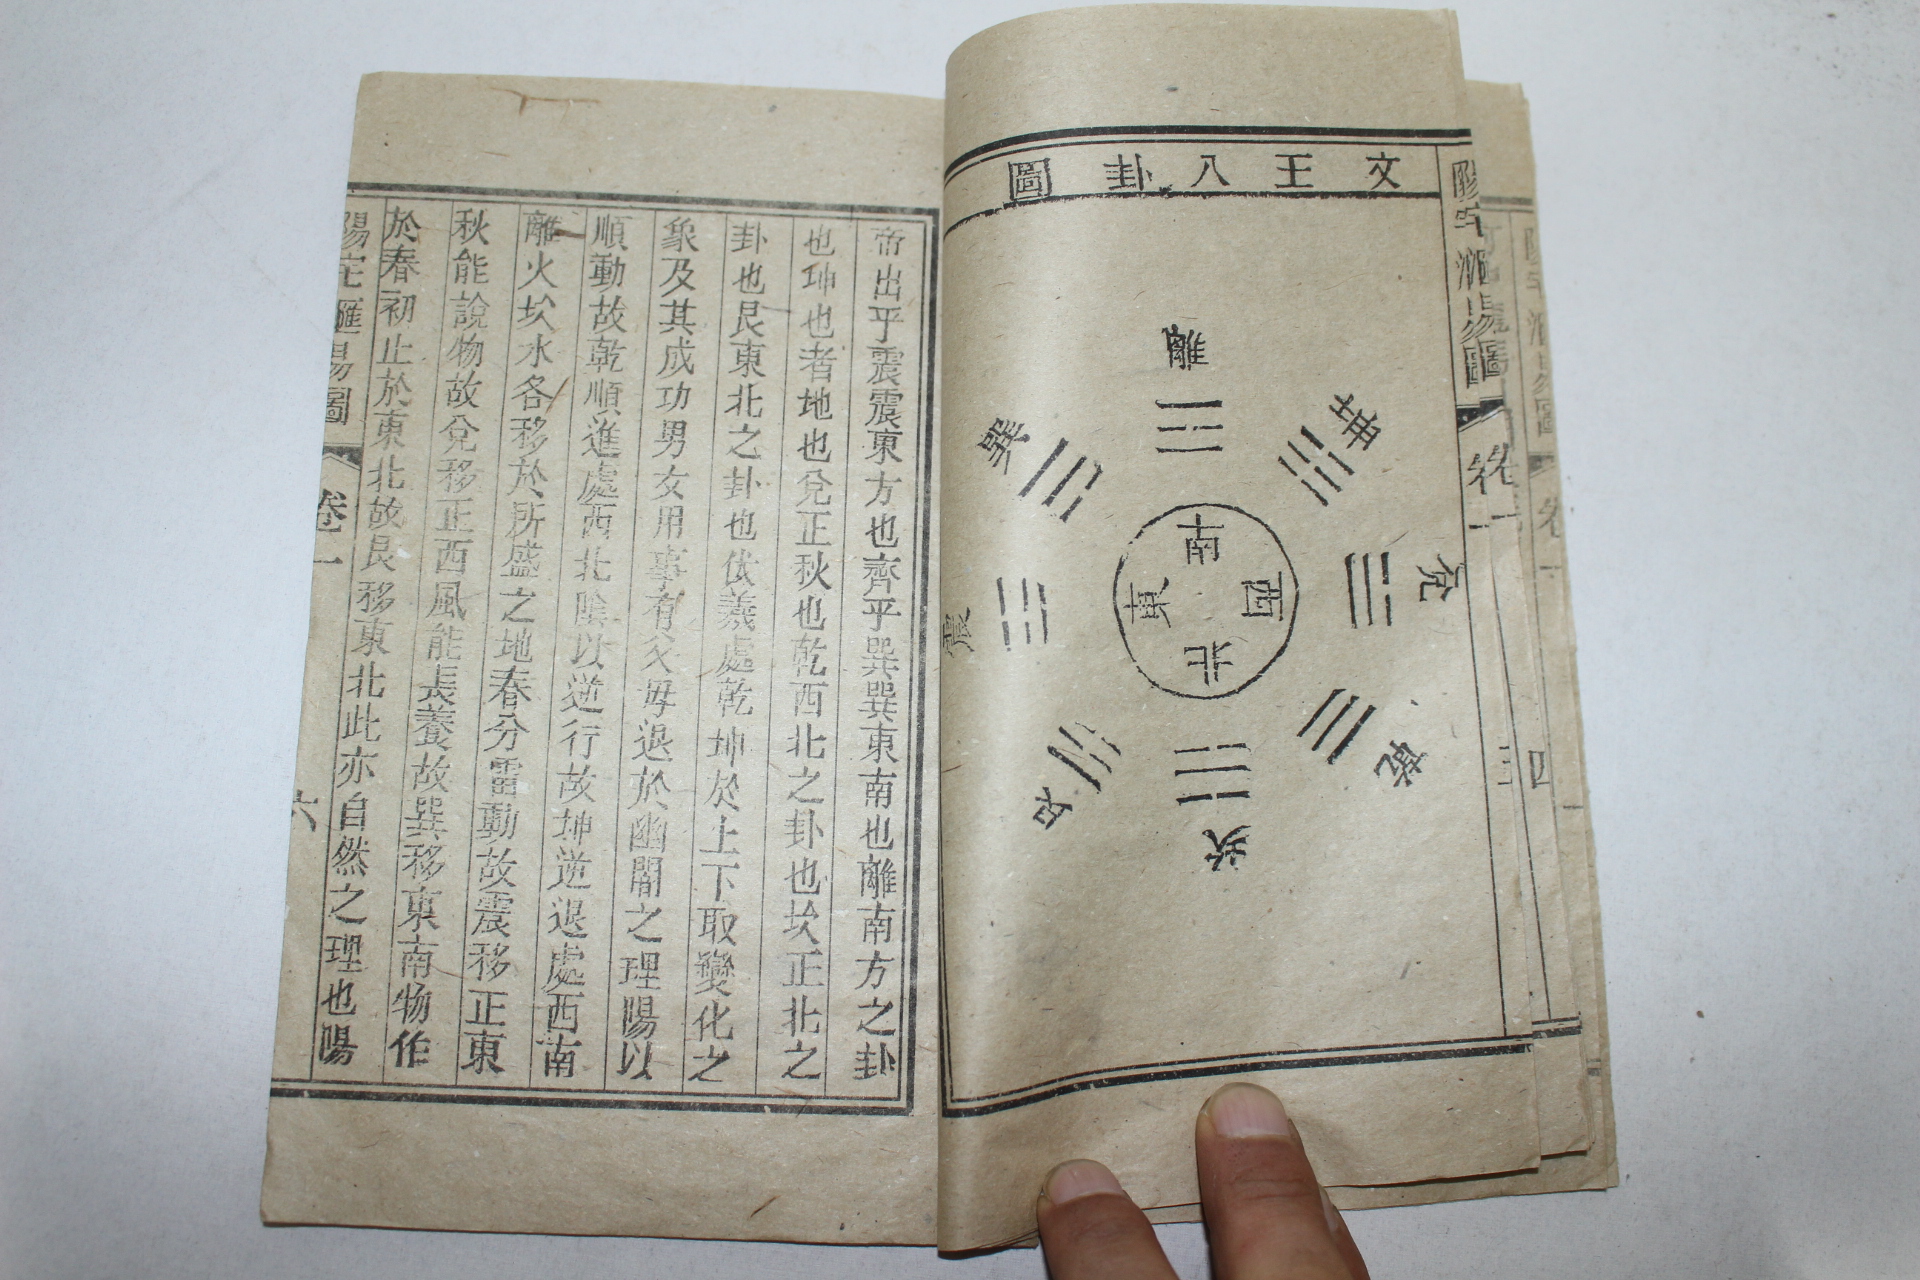 文王八卦圖
離
坤
兌
乾
坎
艮
震
巽
南
西
北
東
卷一
四
帝出乎震震東方也齊乎巽巽東南也離南方之卦
也坤也者地也兌正秋也乾西北之卦也坎正北之
卦也艮東北之卦也伏羲處乾坤於上下取變化之
象及其成功男女用事有父母退於幽闇之理陽以
順動故乾順進處西北陰以逆行故坤逆退處西南
離火坎水各移於所盛之地春分雷動故震移正東
秋能說物故兌移正西風能長養故巽移東南物作
於春初止於東北故艮移東北此亦自然之理也陽
陽宅匯易圖
卷一
六